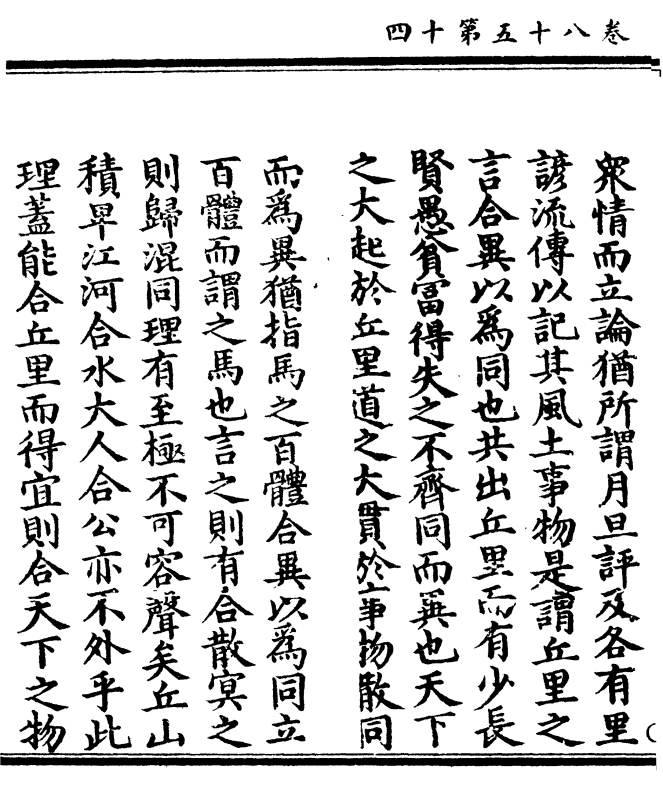 卷八十五第十四
眾情而立論猶所謂月旦評及各有里
諺流傳以記其風土事物是謂丘里之
言合異以為同也共出丘里而有少長
賢愚貧富得失之不齊同而異也天下
之大起於丘里道之大貫於事物散同
而為異猶指馬之百體合異以為同立
百體而謂之馬也言之則有合散冥之
則歸混同理有至極不可容聲矣丘山
積卑江河合水大人合公亦不外乎此
理蓋能合丘里而得宜則合天下之物